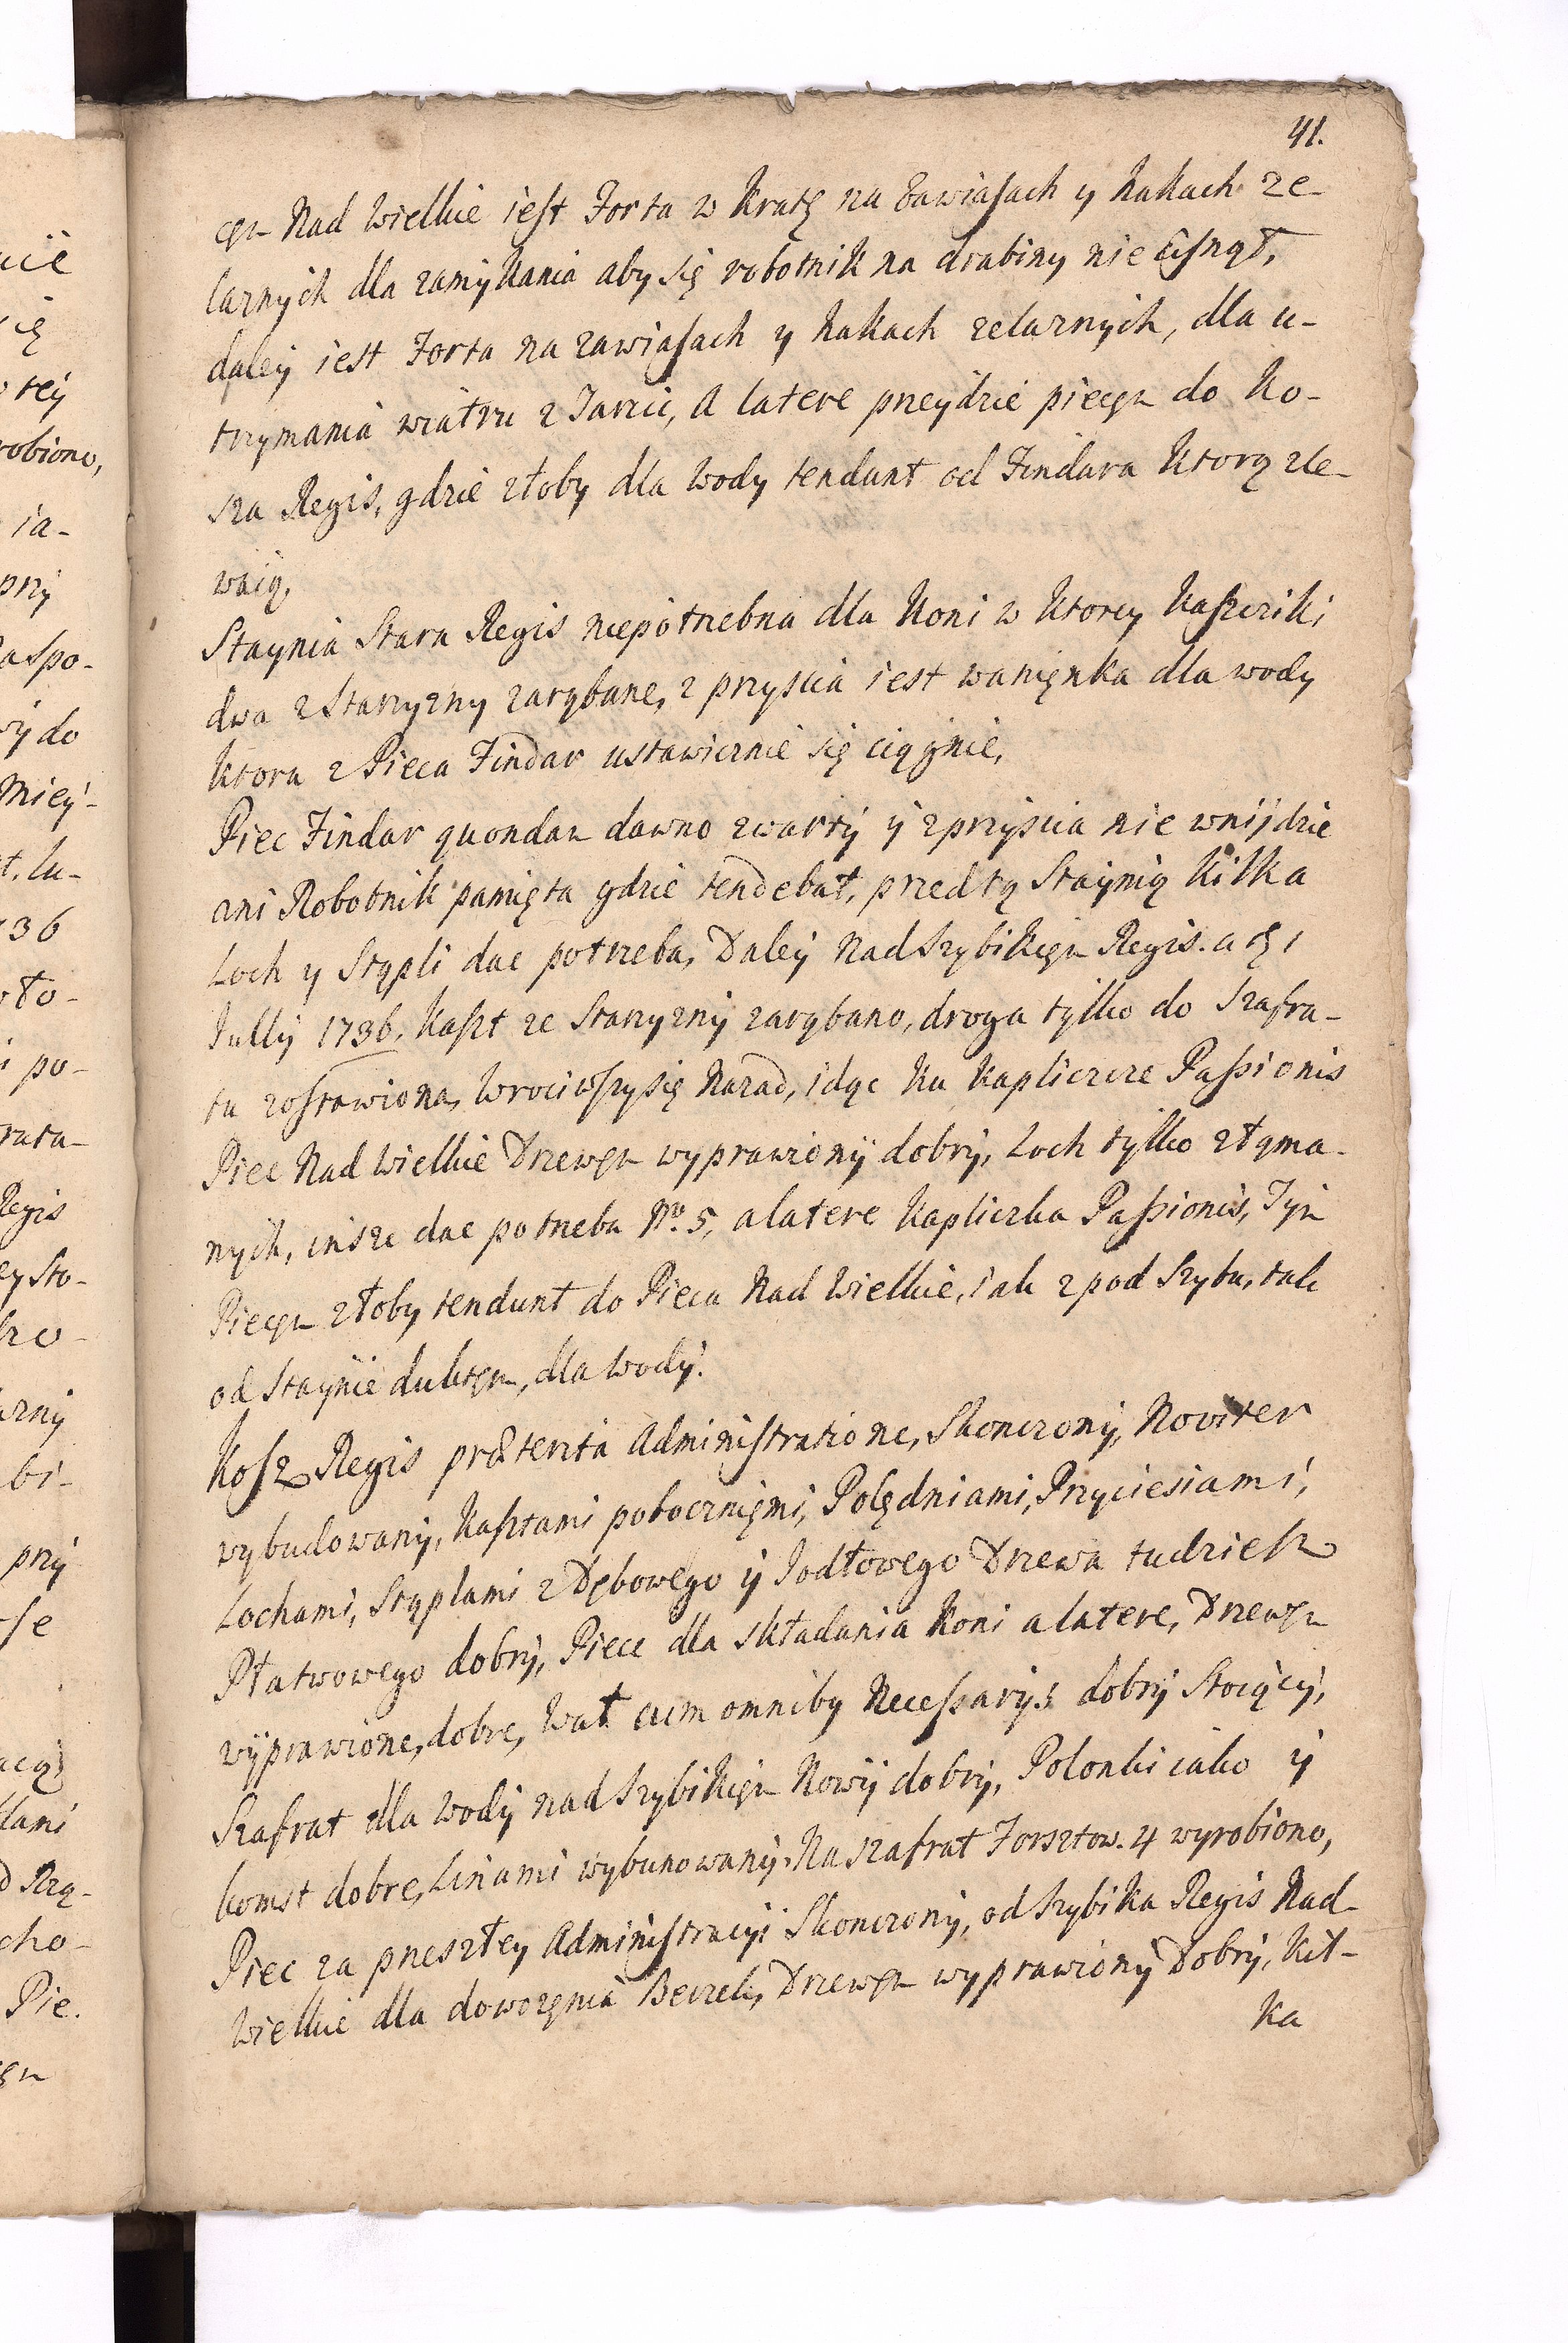 41.
cęm Nad Wielkie iest Forta w Kratę na Zawiasach y hakach że-
laznych dla zamykania aby się robotnik na drabiny nie cisnął,
daley iest Forta na zawiasach y hakach zelaznych, dla u-
trzymania wiatru z Tarcic, A latere przeydzie piecęm do Ko-
sza Regis, gdzie złoby dla Wody tendunt od Findara Ktorą zle-
waią,
Staynia Stara Regis niepotrzebna dla Koni w Ktorey Kaszciki
dwa z Starzyzny zarąbane, z przyscia iest wanięnka dla wody
Ktora z Pieca Findar ustawicznie się ciągnie,
Piec Findar quondam dawno zwarty y z przyscia nie wnijdzie
ani Robotnik pamięta gdzie tendebat, przed tą Staynią Kilka
Loch y Stępli dac potrzeba, Daley Nad Szybikięm Regis.
Jully 1736. Kaszt ze Starzyzny zarąbano, droga tylko do Szafra-
tu zostawiona, Wrociwszy się Nazad, idąc Ku Kapliczcze Passionis
Piec Nad Wielkie Drzewęm wyprawiony dobry, Loch tylko złąma-
nych, insze dac potrzeba No. 5, a latere Kapliczka Passionis, Tym
Piecęm złoby tendunt do Pieca Nad Wielkie, iak z pod Szybu, tak
od Staynie duktęm, dla Wody.
Kosz Regis præterita Administratione, Skonczony, Noviter
wybudowany, Kasztami pobocznięmi, Polędniami, Przyciesiami,
Lochami, Stęplami z Dębowego y Jodłowego Drzewa tudziesz
Płatwowego dobry, Piece dla składania Koni a latere, Drzewęm
wyprawione, dobre, Wał cum omniby Necessarys dobry Stoiący,
Szafrat dla Wody nad Szybikięm Nowy dobry, Polonki iako y
komst dobre, Linami wybunowany. Na szafrat Forsztow. 4 wyrobiono,
Piec za przeszłey Administracyi Skonczony, od Szybika Regis Nad-
Wielkie dla dowozęnia Beczek, Drzewęm wyprawiony Dobry, Kil-
Ka